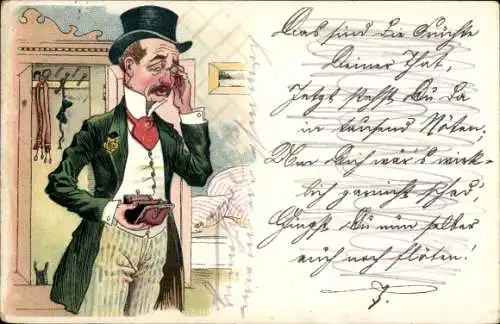 Das sind die Früchte
Deiner That,
Jetzt stehst Du da
in tausend Nöten,
Um Dich wär's wirk-
lich garnicht schad',
Gingst Du nun selber
auch noch flöten!